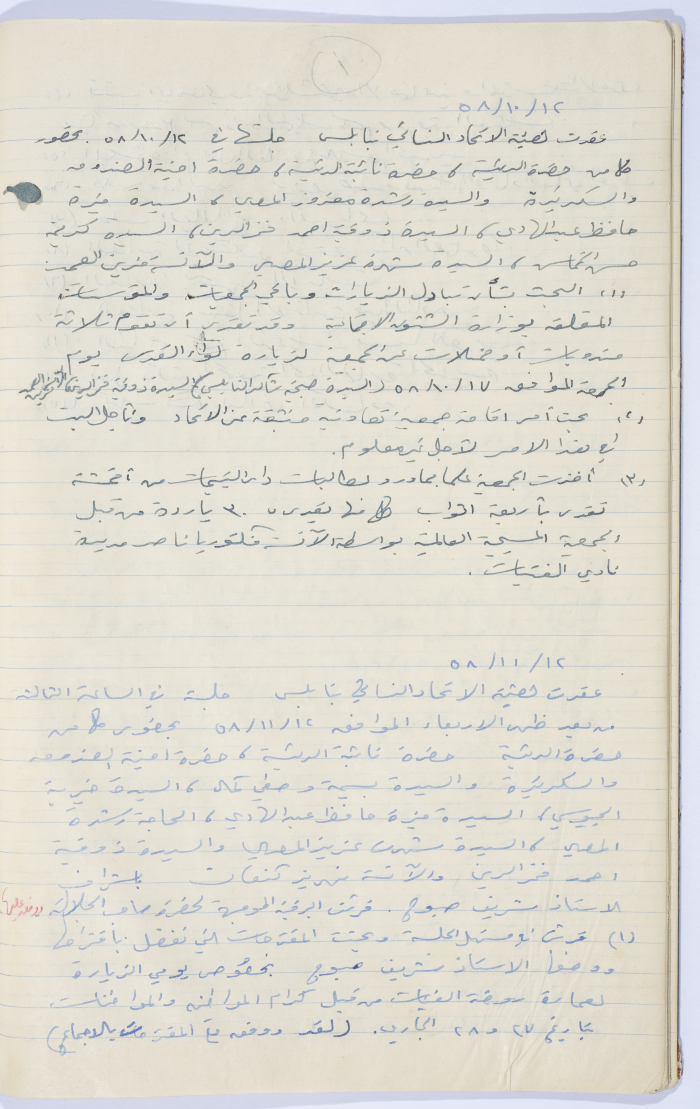 ١
٥٨/١٠/١٢
عقدت لهيئة الاتحاد النسائي بنابلس جلستها في ٥٨/١٠/١٢ بحضور
كل من حضرة الرئيسة، حضرة نائبة الرئيسة، حضرة امينة الصندوق
والسكرتيرة والسيدة رشدة المصري، السيدة عزة
حافظ عبد الهادي، السيدة ذوقية احمد فخر الدين، السيدة كريمة
حسن السيدة شهرة عزيز المصري والآنسة
(١) البحث بشأن تبادل الزيارات وباقي الجمعيات والمؤسسات
المتعلقة بوزارة الشئون الاجتماعية وقد تقرر أن تقوم ثلاثة
مندوبات أو ممثلات عن الجمعية لزيارة لواء القدس يوم
الجمعة الموافق ٥٨/١٠/١٧ (السيدة صبحية شاكر النابلسي، السيدة ذوقية فخر الدين،
(٢) بحث أمر اقامة جمعية تعاونية منبثقة عن الاتحاد وتأجل البت
في هذا الامر لأجل غير معلوم.
(٣) أخذت الجمعية علما بما ورد لطالبات دار اليتيمات من أقمشة
تقدر بأربعة اثواب كل منها يقدر بـ ٣٠ ياردة من قبل
الجمعية المسيحية العالمية بواسطة الآنسة فكتوريا ناصر مديرة
نادي الفتيات.
٥٨/١١/١٢
عقدت لهيئة الاتحاد النسائي بنابلس جلسة في الساعة الثالثة
من بعد ظهر الاربعاء الموافق ٥٨/١١/١٢ بحضور كل من
حضرة الرئيسة حضرة نائبة الرئيسة، حضرة امينة الصندوق
والسكرتيرة والسيدة بسيمة وصفي السيدة خيرية
الجيوسي، السيدة عزة حافظ عبد الهادي، الحاجة رشدة
المصري، السيدة شهرت عزيز المصري والسيدة ذوقية
احمد فخر الدين والآنسة كنعان باشراف
الاستاذ شريف صبوح. قرئت البرقية الموجهة لحضرة صاحب الجلالة
(١) قرئت في مستهل الجلسة وبحثت المقترحات التي تفضل باقتراحها
ووضعها الاستاذ شريف صبوح بخصوص يومي الزيارة
لعمارة روضة الفتيات من قبل كرام المواطنين والمواطنات
بتاريخ ٢٧ و ٢٨ الجاري. (لقد ووفق على المقترحات بالاجماع)